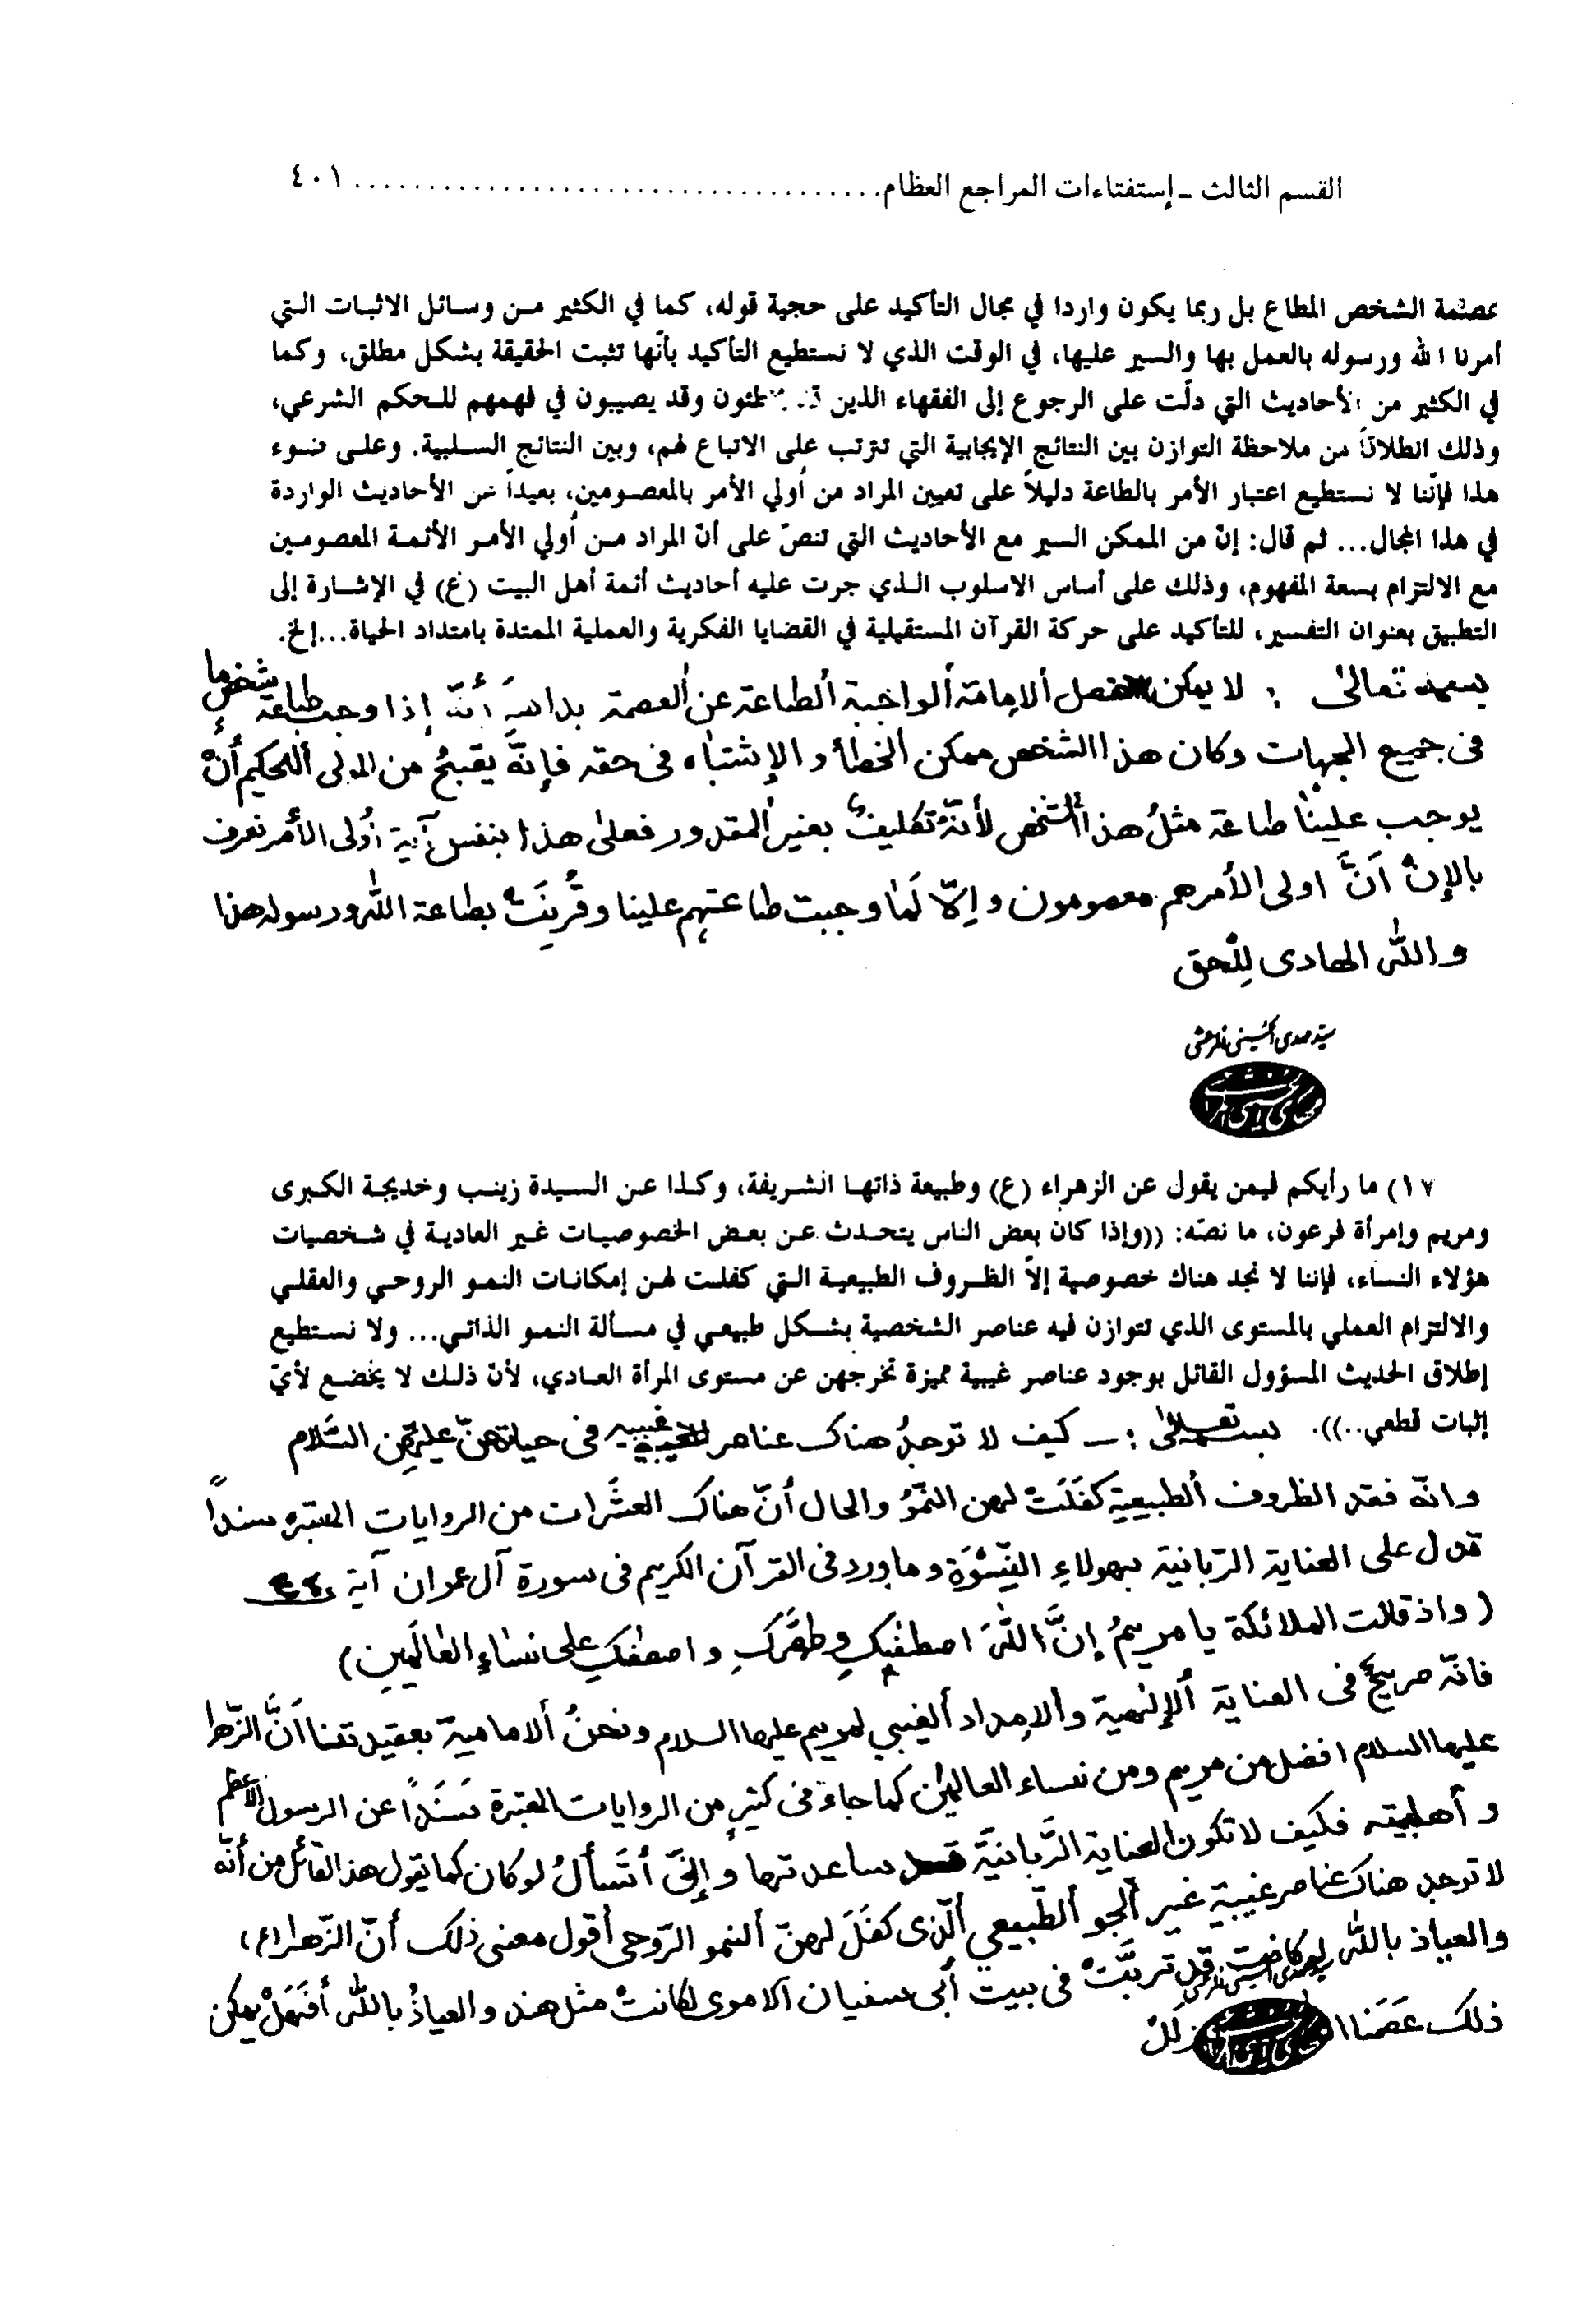 القسم الثالث ـ إستفتاءات المراجع العظام................................... ٤٠١
عصمة الشخص المطاع بل ربما يكون واردا في مجال التأكيد على حجية قوله، كما في الكثير من وسائل الاثبات التي
أمرنا الله ورسوله بالعمل بها والسير عليها، في الوقت الذي لا نستطيع التأكيد بأنّها تثبت الحقيقة بشكل مطلق، وكما
في الكثير من الأحاديث التي دلّت على الرجوع إلى الفقهاء الذين وقد يصيبون في فهمهم للحكم الشرعي،
وذلك انطلاقاً من ملاحظة التوازن بين النتائج الإيجابية التي تترتب على الاتباع لهم، وبين النتائج السلبية. وعلى ضوء
هذا فإنّنا لا نستطيع اعتبار الأمر بالطاعة دليلاً على تعيين المراد من أولي الأمر بالمعصومين، بعيداً عن الأحاديث الواردة
في هذا المجال... ثم قال: إنّ من الممكن السير مع الأحاديث التي تنصّ على أنّ المراد من أولي الأمر الأئمة المعصومين
مع الالتزام بسعة المفهوم، وذلك على أساس الاسلوب الذي جرت عليه أحاديث أئمة أهل البيت (ع) في الإشارة إلى
التطبيق بعنوان التفسير، للتأكيد على حركة القرآن المستقبلية في القضايا الفكرية والعملية الممتدة بامتداد الحياة...إلخ.
بسمه تعالىٰ : لا يمكن فصل ألإمامة ألواجبة ألطاعة عن ألعصمة بداهة أنّه إذا وجب طاعة شخصٍ ما
فى جميع الجهات وكان هذا الشخص ممكن ألخطأ والإشتباه فى حقه فإنّه يقبحُ من المولى ألحكيم أنْ
يوجب علينا طاعة مثلُ هذا ألشخص لأنّه تكليفٌ بغير ألمقدور فعلىٰ هذا بنفس آية أُولى الأمر نعرف
بالإنْ أنَّ اولى الأمر هم معصومون وإلّا لَمَا وجبت طاعتهم علينا وقُرِنَتْ بطاعة اللّٰه ورسوله هذا
واللّٰه الهادى لِلْحق
سيد مهدى الحسينى المرعشى
١٧) ما رأيكم فيمن يقول عن الزهراء (ع) وطبيعة ذاتها الشريفة، وكذا عن السيدة زينب وخديجة الكبرى
ومريم وإمرأة فرعون، ما نصّه: ((وإذا كان بعض الناس يتحدث عن بعض الخصوصيات غير العادية في شخصيات
هؤلاء النساء، فإننا لا نجد هناك خصوصية إلاّ الظروف الطبيعية التي كفلت لهن إمكانات النمو الروحي والعقلي
والالتزام العملي بالمستوى الذي تتوازن فيه عناصر الشخصية بشكل طبيعي في مسألة النمو الذاتي... ولا نستطيع
إطلاق الحديث المسؤول القائل بوجود عناصر غيبية مميزة تخرجهن عن مستوى المرأة العادي، لأن ذلك لا يخضع لأيّ
إثبات قطعي..)). بسمه تعالىٰ :ـ كيف لا توجدُ هناك عناصر غيبيه فى حياتهنّ عليهنّ السّلام
وانّه فقد الظروف ألطبيعية كفَلَتْ لهن النموّ والحال أنّ هناك العشَرات من الروايات المعتبره سنداً
تدل على العناية الرّبانية بهولاءِ النِّسْوَة وما ورد فى القرآن الكريم فى سورة آل عمران آية
(واذ قالت الملائكة يا مريمُ إنَّ اللّٰهَ اصطفٰيكِ وطهَّركِ واصطفٰكِ على نساءِ العٰالَمين)
فانّه صريحٌ فى العناية ألإلٰهية وألإمداد ألغيبي لمريم عليها السلام ونحنُ ألامامية بعقيدتنا أنَّ الزّهرا
عليها السلام افضل من مريم ومن نساء العالمين كما جاءَ فى كثيرٍ من الروايات المعتبرة سَنَداً عن الرسول الأعظم
وأهلبيته فكيف لا تكون العناية الرَّبانيَّة قد ساعدتها وإنّى أتَسأَلُ لو كان كما يقول هذا القائل من أنّه
لا توجد هناك عناصر غيبية غير ألجو ألطّبيعي ألّذى كفَلَ لهنّ ألنمو الرّوحى أقول معنى ذلك أنّ الزّهراء (ع)
والعياذ باللّٰه لو كانت قد تربَّتْ فى بيت أبى سفيان الاموى لكانتْ مثل هند والعياذُ باللّٰه أفَهَلْ يمكن
ذلك عَصَمَنا زلَلْ
سيد مهدى الحسينى المرعشى